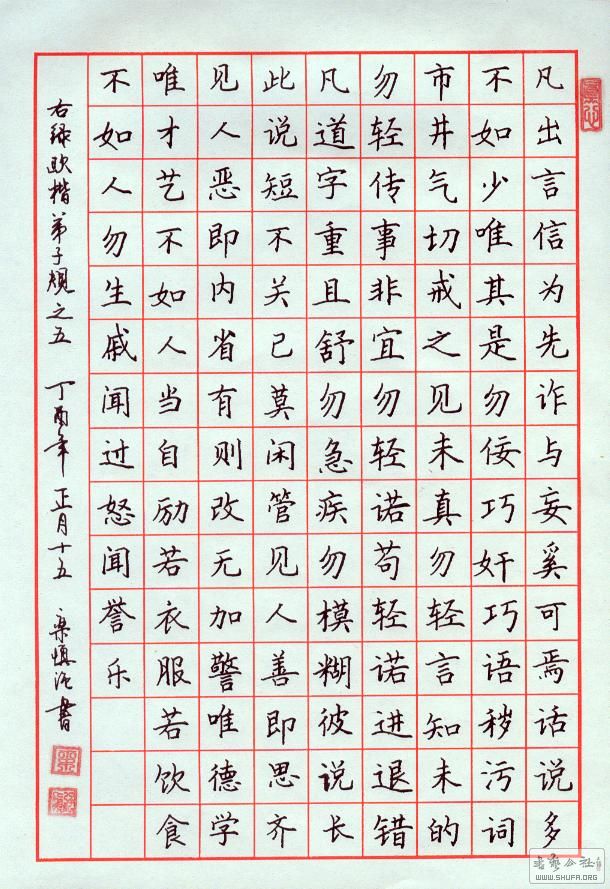 凡出言信为先诈与妄奚可焉话说多
不如少唯其是勿佞巧奸巧语秽污词
市井气切戒之见未真勿轻言知未的
勿轻传事非宜勿轻诺苟轻诺进退错
凡道字重且舒勿急疾勿模糊彼说长
此说短不关己莫闲管见人善即思齐
见人恶即内省有则改无加警唯德学
唯才艺不如人当自励若衣服若饮食
不如人勿生戚闻过怒闻誉乐
右录欧楷弟子规之五 丁酉年 正月十五 书
WWW.SHUFA.ORG